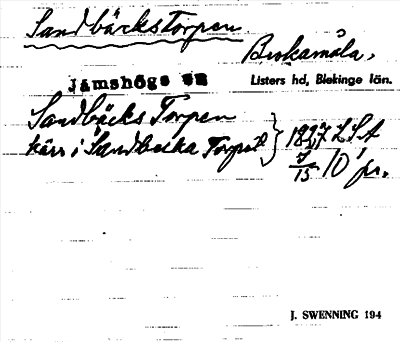 Sandbäckstorpen
Brokamåla,
Jämshögs sn
Listers hd, Blekinge län.
Sandbäcks Torpen
kärr i Sandbecka Torpet } 1827 LSA
7/15 10 pr.
J. SWENNING 194